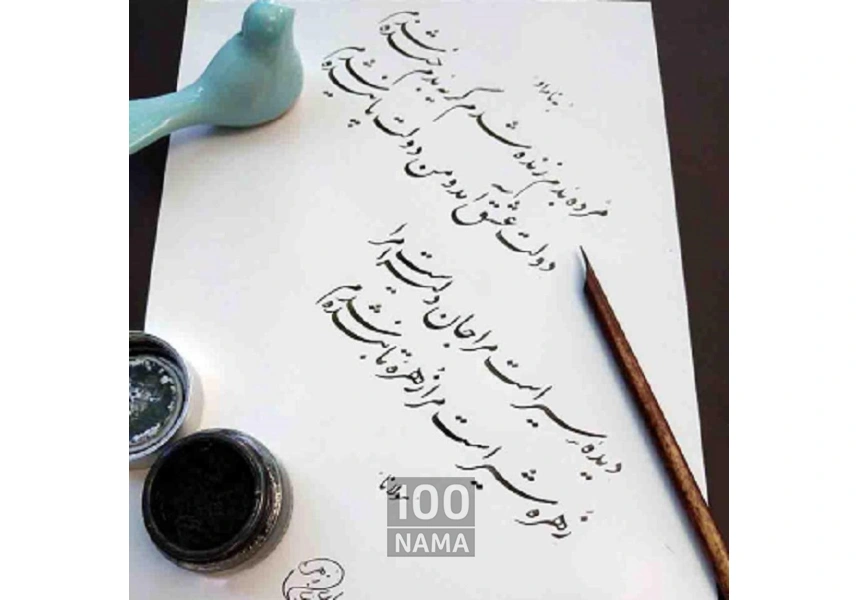 به نام او
مرده بدم زنده شدم گریه بدم خنده شدم
دولت عشق آمد و من دولت پاینده شدم
دیده سیر است مرا جان دلیر است مرا
زهره شیر است مرا زهره تابنده شدم
مولانا
100
NAMA